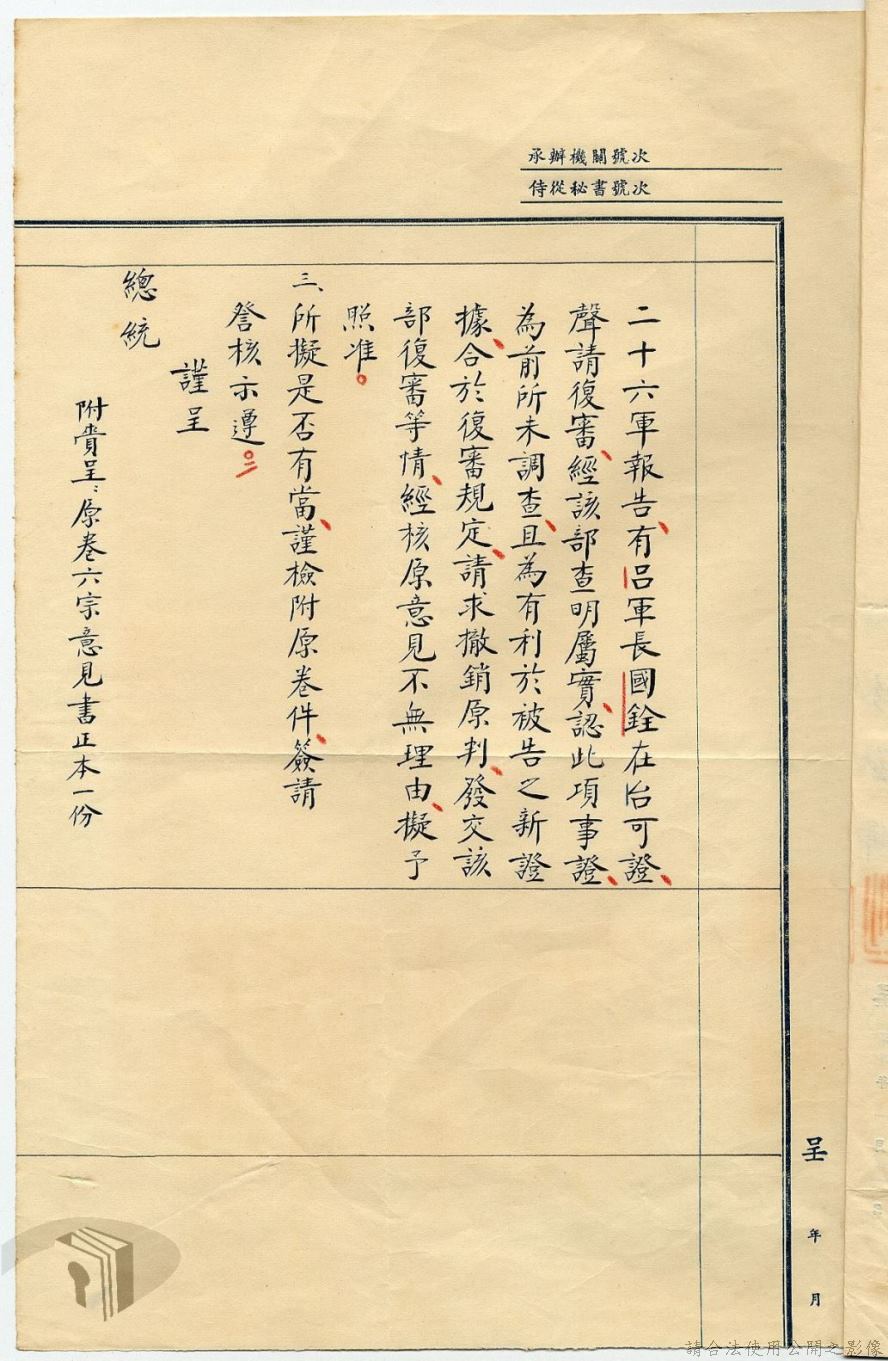 承辦機關號次
侍從秘書號次
二十六軍報告、有呂軍長國銓在台可證、
聲請復審、經該部查明屬實、認此項事證、
為前所未調查、且為有利於被告之新證
據、合於復審規定、請求撤銷原判、發交該
部復審等情、經核原意見不無理由、擬予
照准。
三、所擬是否有當、謹檢附原卷件、簽請
詧核示遵。
謹呈
總統
附賫呈：原卷六宗意見書正本一份
呈 年 月
請合法使用公開之影像